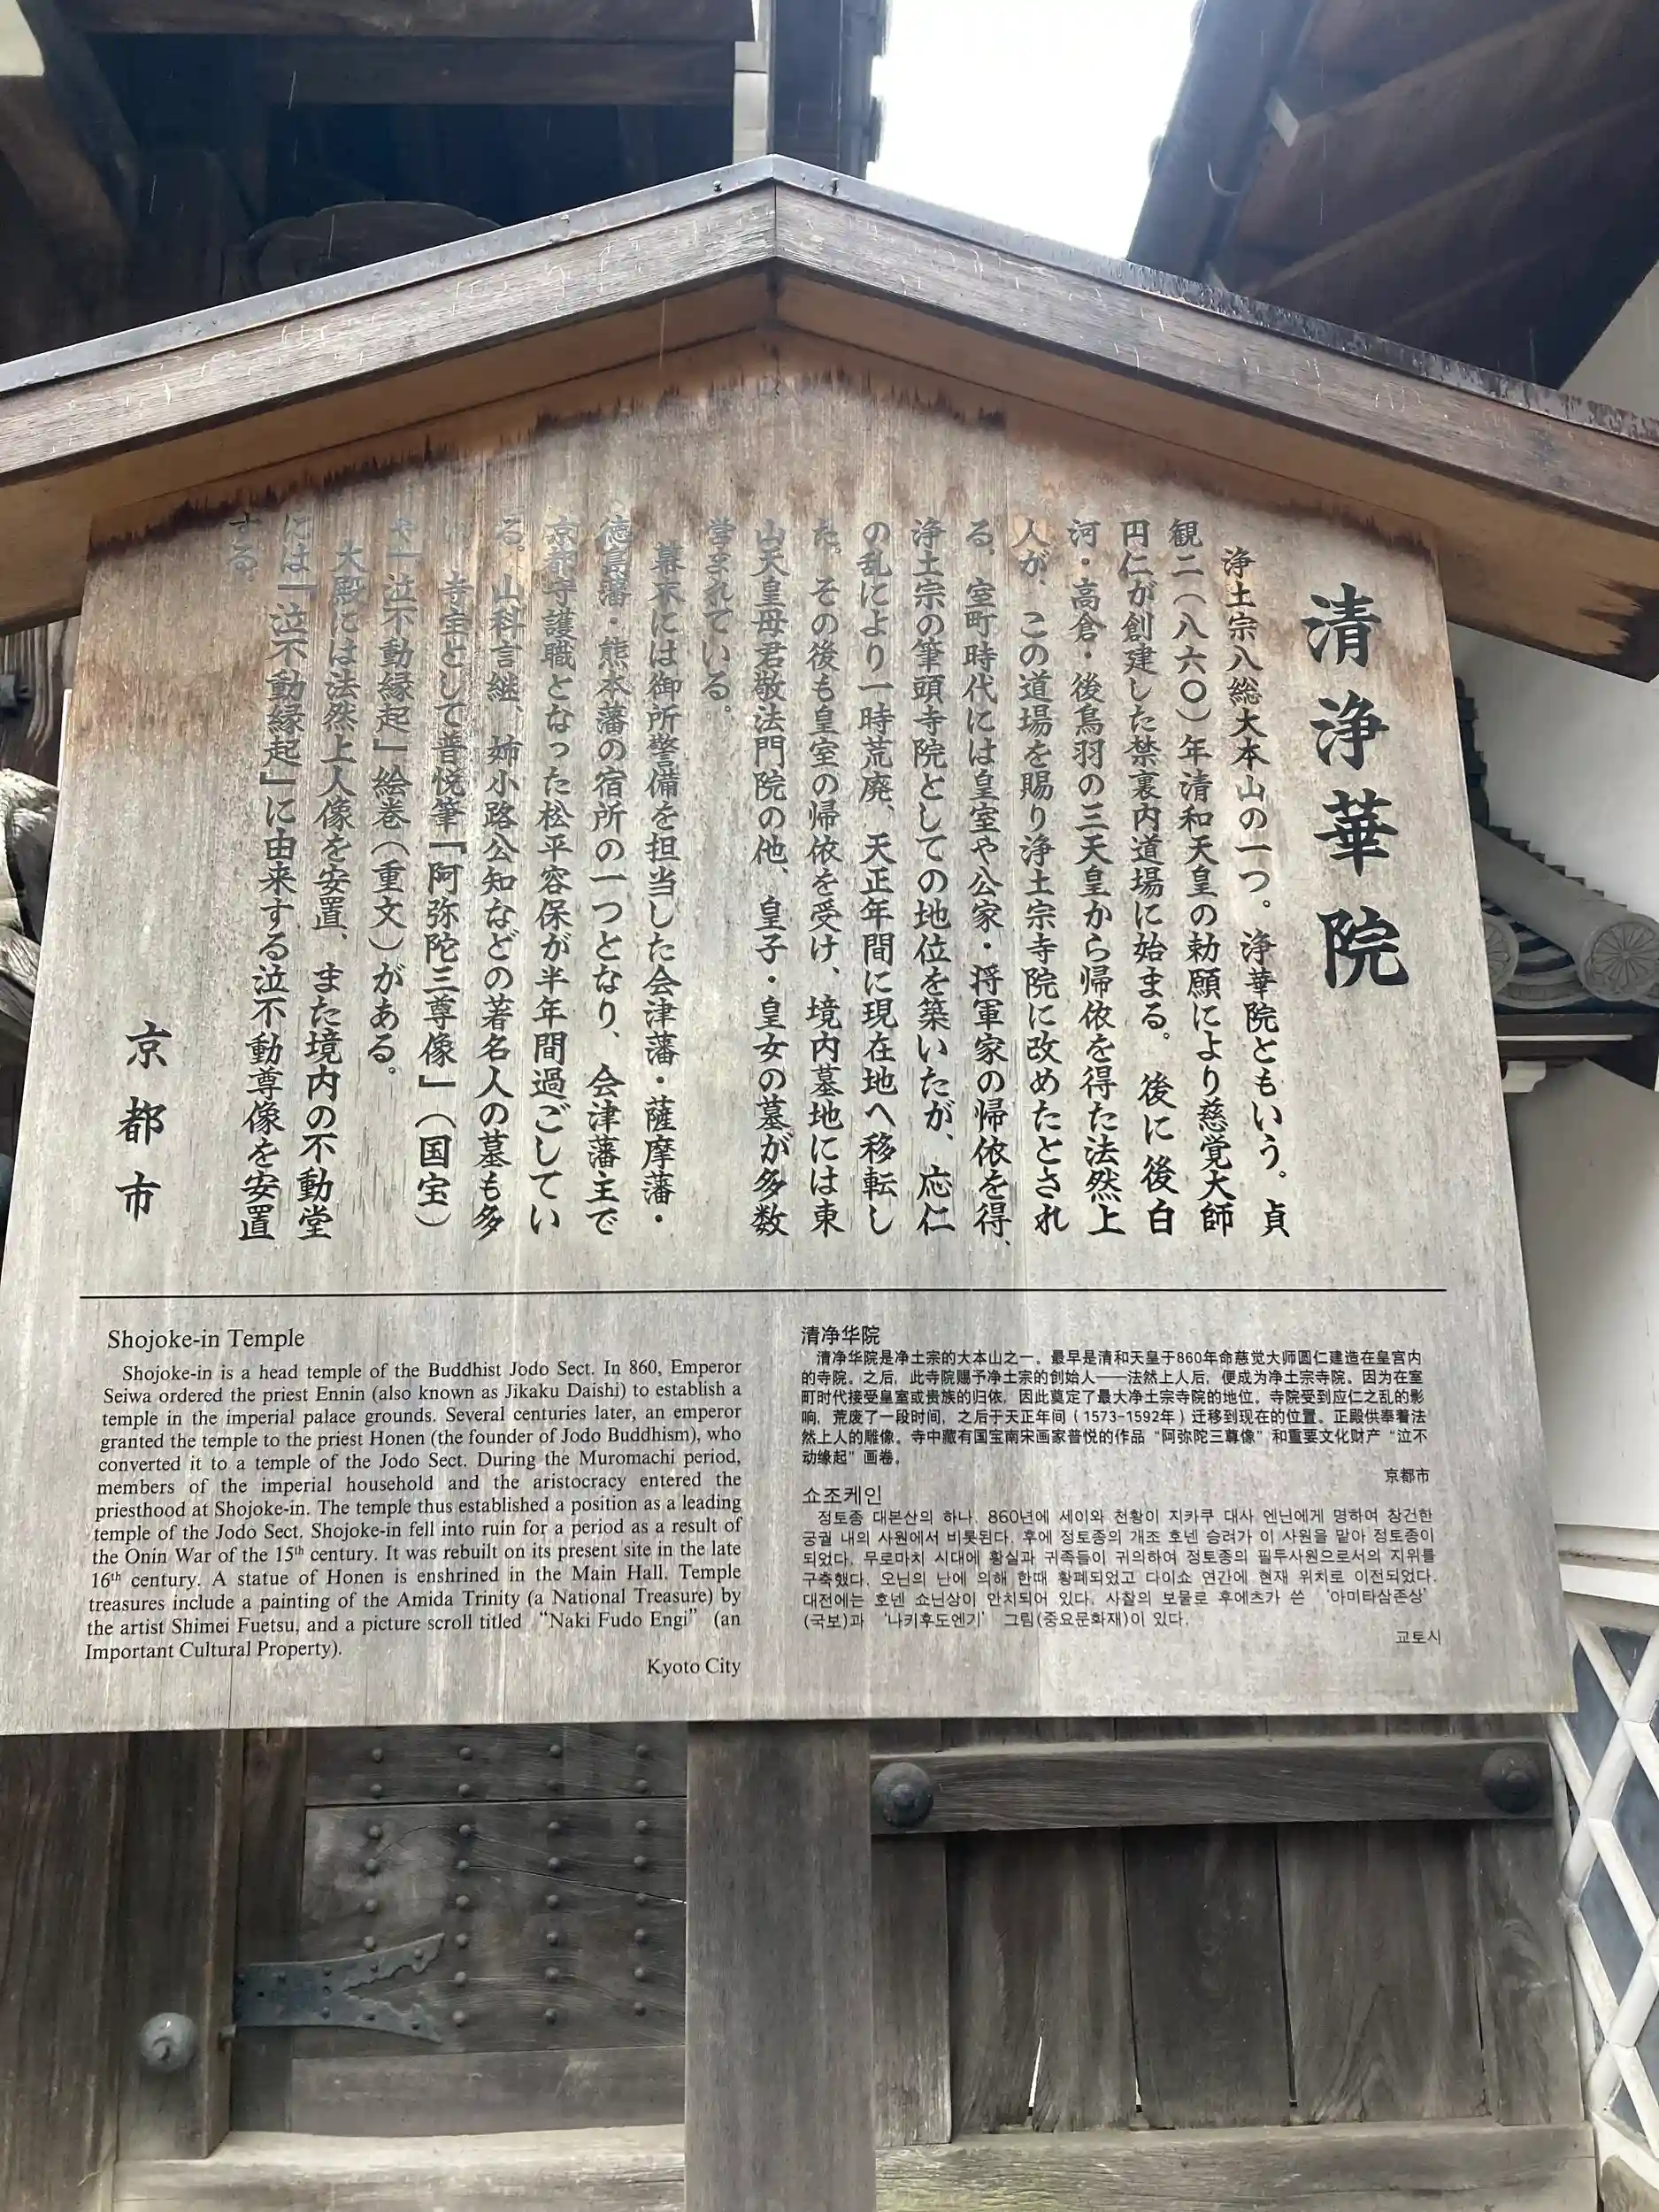 清浄華院
浄土宗八総大本山の一つ。浄華院ともいう。貞
観二(八六〇)年清和天皇の勅願により慈覚大師
円仁が創建した禁裏内道場に始まる。後に後白
河・高倉・後鳥羽の三天皇から帰依を得た法然上
人が、この道場を賜り浄土宗寺院に改めたとされ
る。室町時代には皇室や公家・将軍家の帰依を得、
浄土宗の筆頭寺院としての地位を築いたが、応仁
の乱により一時荒廃、天正年間に現在地へ移転し
た。その後も皇室の帰依を受け、境内墓地には東
山天皇母君敬法門院の他、皇子・皇女の墓が多数
営まれている。
幕末には御所警備を担当した会津藩・薩摩藩・
徳島藩・熊本藩の宿所の一つとなり、会津藩主で
京都守護職となった松平容保が半年間過ごしてい
る。山科言継、姉小路公知などの著名人の墓も多
い。寺宝として普悦筆『阿弥陀三尊像』(国宝)
や『泣不動縁起』絵巻(重文)がある。
大殿には法然上人像を安置、また境内の不動堂
には『泣不動縁起』に由来する泣不動尊像を安置
する。
京都市
Shojoke-in Temple
Shojoke-in is a head temple of the Buddhist Jodo Sect. In 860, Emperor
Seiwa ordered the priest Ennin (also known as Jikaku Daishi) to establish a
temple in the imperial palace grounds. Several centuries later, an emperor
granted the temple to the priest Honen (the founder of Jodo Buddhism), who
converted it to a temple of the Jodo Sect. During the Muromachi period,
members of the imperial household and the aristocracy entered the
priesthood at Shojoke-in. The temple thus established a position as a leading
temple of the Jodo Sect. Shojoke-in fell into ruin for a period as a result of
the Onin War of the 15th century. It was rebuilt on its present site in the late
16th century. A statue of Honen is enshrined in the Main Hall. Temple
treasures include a painting of the Amida Trinity (a National Treasure) by
the artist Shimei Fuetsu, and a picture scroll titled “Naki Fudo Engi” (an
Important Cultural Property).
Kyoto City
清净华院
清净华院是净土宗的大本山之一。最早是清和天皇于860年命慈觉大师圆仁建造在皇宫内
的寺院。之后，此寺院赐予净土宗的创始人——法然上人后，便成为净土宗寺院。因为在室
町时代接受皇室或贵族的归依，因此奠定了最大净土宗寺院的地位。寺院受到应仁之乱的影
响，荒废了一段时间，之后于天正年间（1573-1592年）迁移到现在的位置。正殿供奉着法
然上人的雕像。寺中藏有国宝南宋画家普悦的作品“阿弥陀三尊像”和重要文化财产“泣不
动缘起”画卷。
京都市
쇼조케인
정토종 대본산의 하나. 860년에 세이와 천황이 지카쿠 대사 엔닌에게 명하여 창건한
궁궐 내의 사원에서 비롯된다. 후에 정토종의 개조 호넨 승려가 이 사원을 맡아 정토종이
되었다. 무로마치 시대에 황실과 귀족들이 귀의하여 정토종의 필두사원으로서의 지위를
구축했다. 오닌의 난에 의해 한때 황폐되었고 다이쇼 연간에 현재 위치로 이전되었다.
대전에는 호넨 쇼닌상이 안치되어 있다. 사찰의 보물로 후에츠가 쓴 ‘아미타삼존상’
(국보)과 ‘나키후도엔기’ 그림(중요문화재)이 있다.
교토시